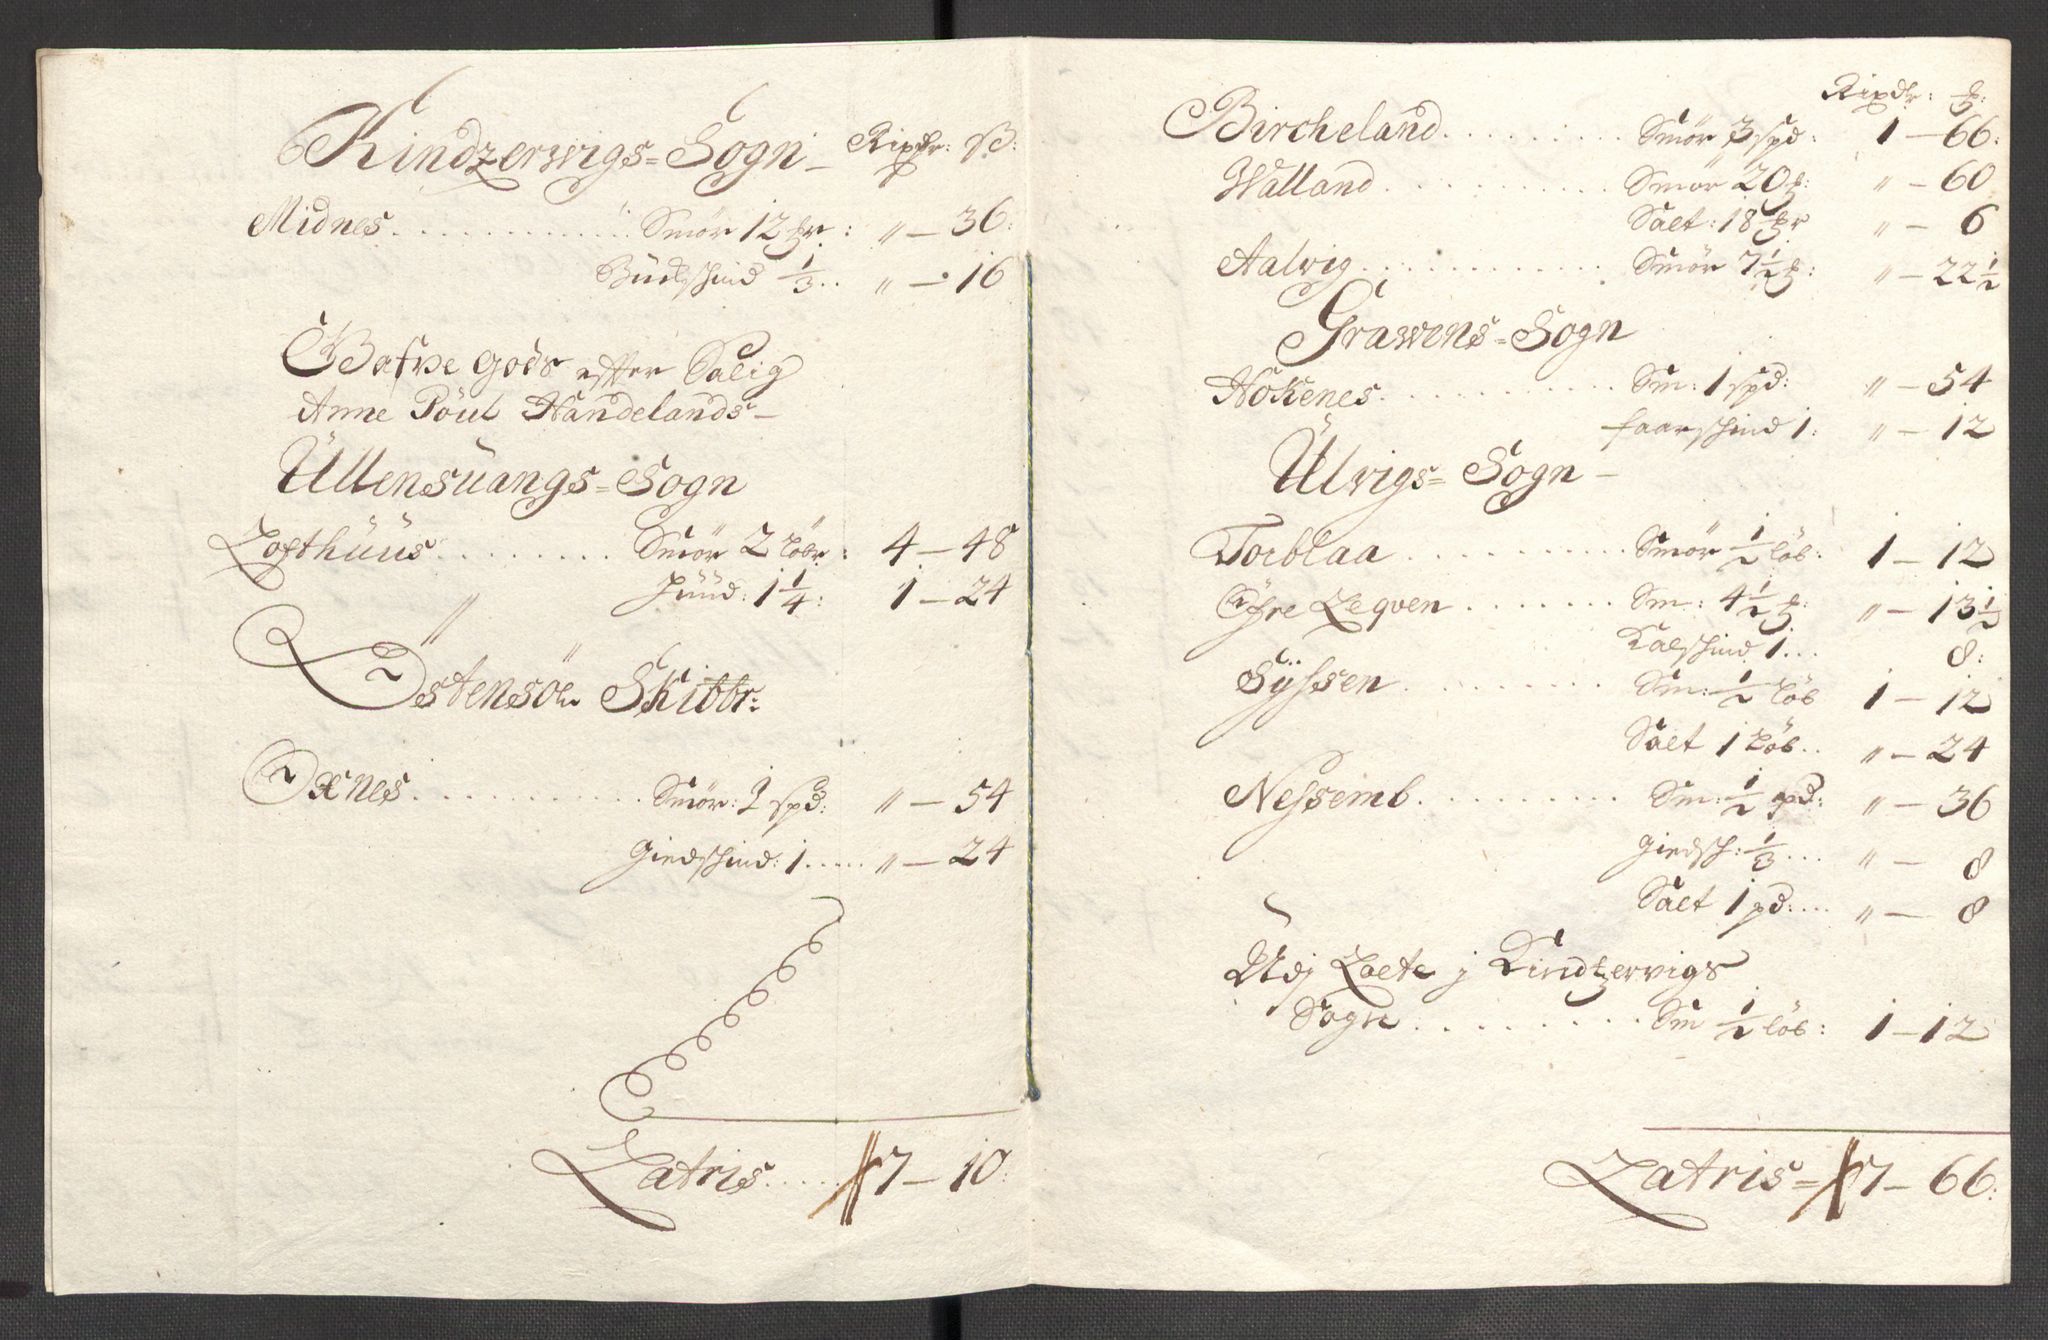 Kindzerwigs = Sogn – Rixdr: ß:
Midnes . . . . . . . . . . Smör 12 ℔r : " – 36:
Buckschind 1/3 . . " – 16
Bafve gods effter Salig
Anne Pöul Handelands –
Üllensuangs = Sogn
Lofthüüs . . . . . . . . Smör 2 löbr : 4 – 48
" Huud: 1 1/4: 1 – 24
Östensöe Skibbr:
Oxnes . . . . . . . . . . Smör: 1 spd: " – 54
giedschind: 1 . . . . . " – 24
Latris . . . . . 7 – 10:
Rixdr: ß:
Bircheland . . . . . . . . . Smör 3 spd: 1 – 66:
Walland . . . . . . . . . . Smör 20 ℔: " – 60
Salt: 18 ℔r " – 6
Aalvig . . . . . . . . . . . Smör 7 1/2 ℔: " – 22 1/2
Grawens = Sogn
Hokenes . . . . . . . . . Sm: 1 spd: " – 54
faarschind 1: " – 12
Ülvigs = Sogn –
Torblaa . . . . . . . . . Smör 1/2 löb: 1 – 12
Öfre Leqven . . . . . . . Sm: 4 1/2 ℔: " – 13 1/2
Kalfschind 1 . . . 8:
Syssen . . . . . . . . . Sm: 1/2 löb 1 – 12
Salt 1 löb . . " – 24
Nessemb . . . . . . . . . Sm: 1/2 spd: " – 36
giedsch: 1/3 . . . " – 8
Salt 1 pd: . . . " – 8
Udj Laete j Kindtzervigs
Sogn . . . . . . . . . . Sm 1/2 löb: 1 – 12
Latris = 7 – 66: